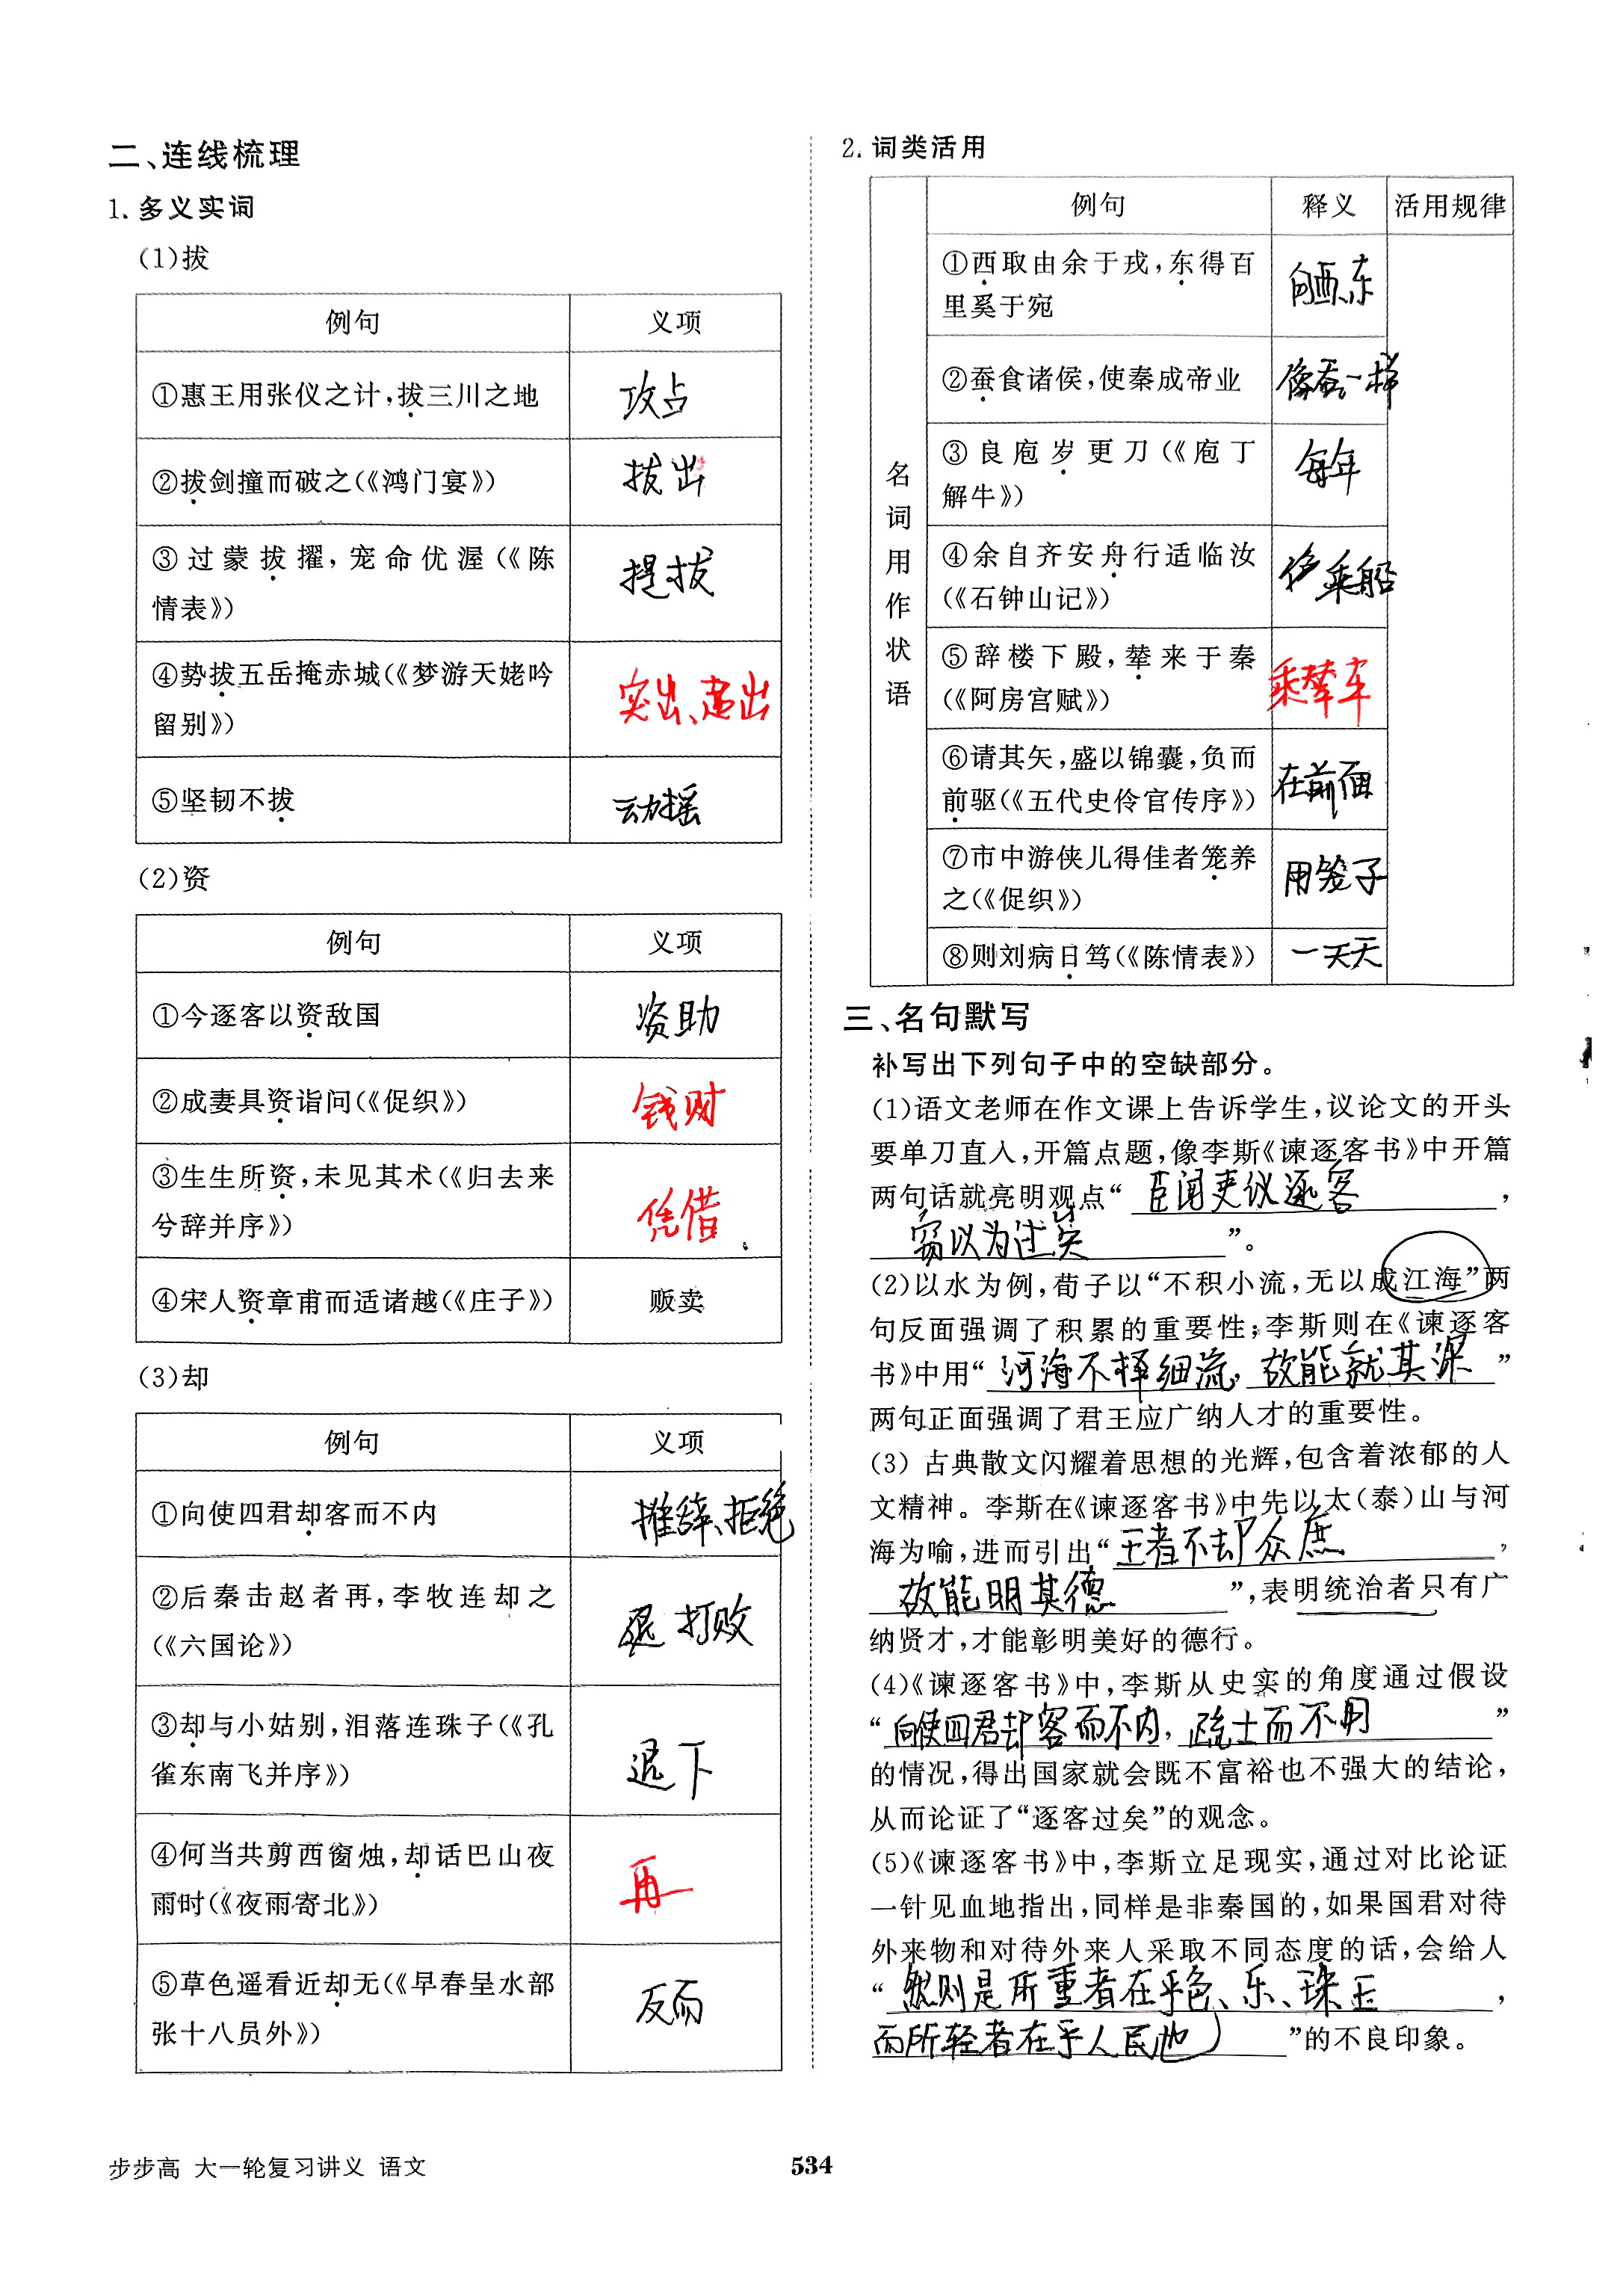 二、连线梳理
1. 多义实词
(1)拔
例句 义项
①惠王用张仪之计,拔三川之地 攻占
②拔剑撞而破之(《鸿门宴》) 拔出
③过蒙拔擢,宠命优渥(《陈
情表》) 提拔
④势拔五岳掩赤城(《梦游天姥吟
留别》) 突出、超出
⑤坚韧不拔 动摇
(2)资
例句 义项
①今逐客以资敌国 资助
②成妻具资诣问(《促织》) 钱财
③生生所资,未见其术(《归去来
兮辞并序》) 凭借
④宋人资章甫而适诸越(《庄子》) 贩卖
(3)却
例句 义项
①向使四君却客而不内 推辞、拒绝
②后秦击赵者再,李牧连却之
(《六国论》) 打败
③却与小姑别,泪落连珠子(《孔
雀东南飞并序》) 退下
④何当共剪西窗烛,却话巴山夜
雨时(《夜雨寄北》) 再
⑤草色遥看近却无(《早春呈水部
张十八员外》) 反而
2. 词类活用
名词用作状语
例句 释义 活用规律
①西取由余于戎,东得百
里奚于宛 向西、东
②蚕食诸侯,使秦成帝业 像蚕一样
③良庖岁更刀(《庖丁
解牛》) 每年
④余自齐安舟行适临汝
(《石钟山记》) 乘船
⑤辞楼下殿,辇来于秦
(《阿房宫赋》) 乘辇车
⑥请其矢,盛以锦囊,负而
前驱(《五代史伶官传序》) 在前面
⑦市中游侠儿得佳者笼养
之(《促织》) 用笼子
⑧则刘病日笃(《陈情表》) 一天天
三、名句默写
补写出下列句子中的空缺部分。
(1)语文老师在作文课上告诉学生,议论文的开头
要单刀直入,开篇点题,像李斯《谏逐客书》中开篇
两句话就亮明观点“臣闻吏议逐客,
窃以为过矣”。
(2)以水为例,荀子以“不积小流,无以成江海”两
句反面强调了积累的重要性;李斯则在《谏逐客
书》中用“河海不择细流,故能就其深”
两句正面强调了君王应广纳人才的重要性。
(3)古典散文闪耀着思想的光辉,包含着浓郁的人
文精神。李斯在《谏逐客书》中先以太(泰)山与河
海为喻,进而引出“王者不却众庶,
故能明其德”,表明统治者只有广
纳贤才,才能彰明美好的德行。
(4)《谏逐客书》中,李斯从史实的角度通过假设
“向使四君却客而不内,疏士而不用”
的情况,得出国家就会既不富裕也不强大的结论,
从而论证了“逐客过矣”的观念。
(5)《谏逐客书》中,李斯立足现实,通过对比论证
一针见血地指出,同样是非秦国的,如果国君对待
外来物和对待外来人采取不同态度的话,会给人
“然则是所重者在乎色、乐、珠玉,
而所轻者在乎人民也”的不良印象。
步步高 大一轮复习讲义 语文 534